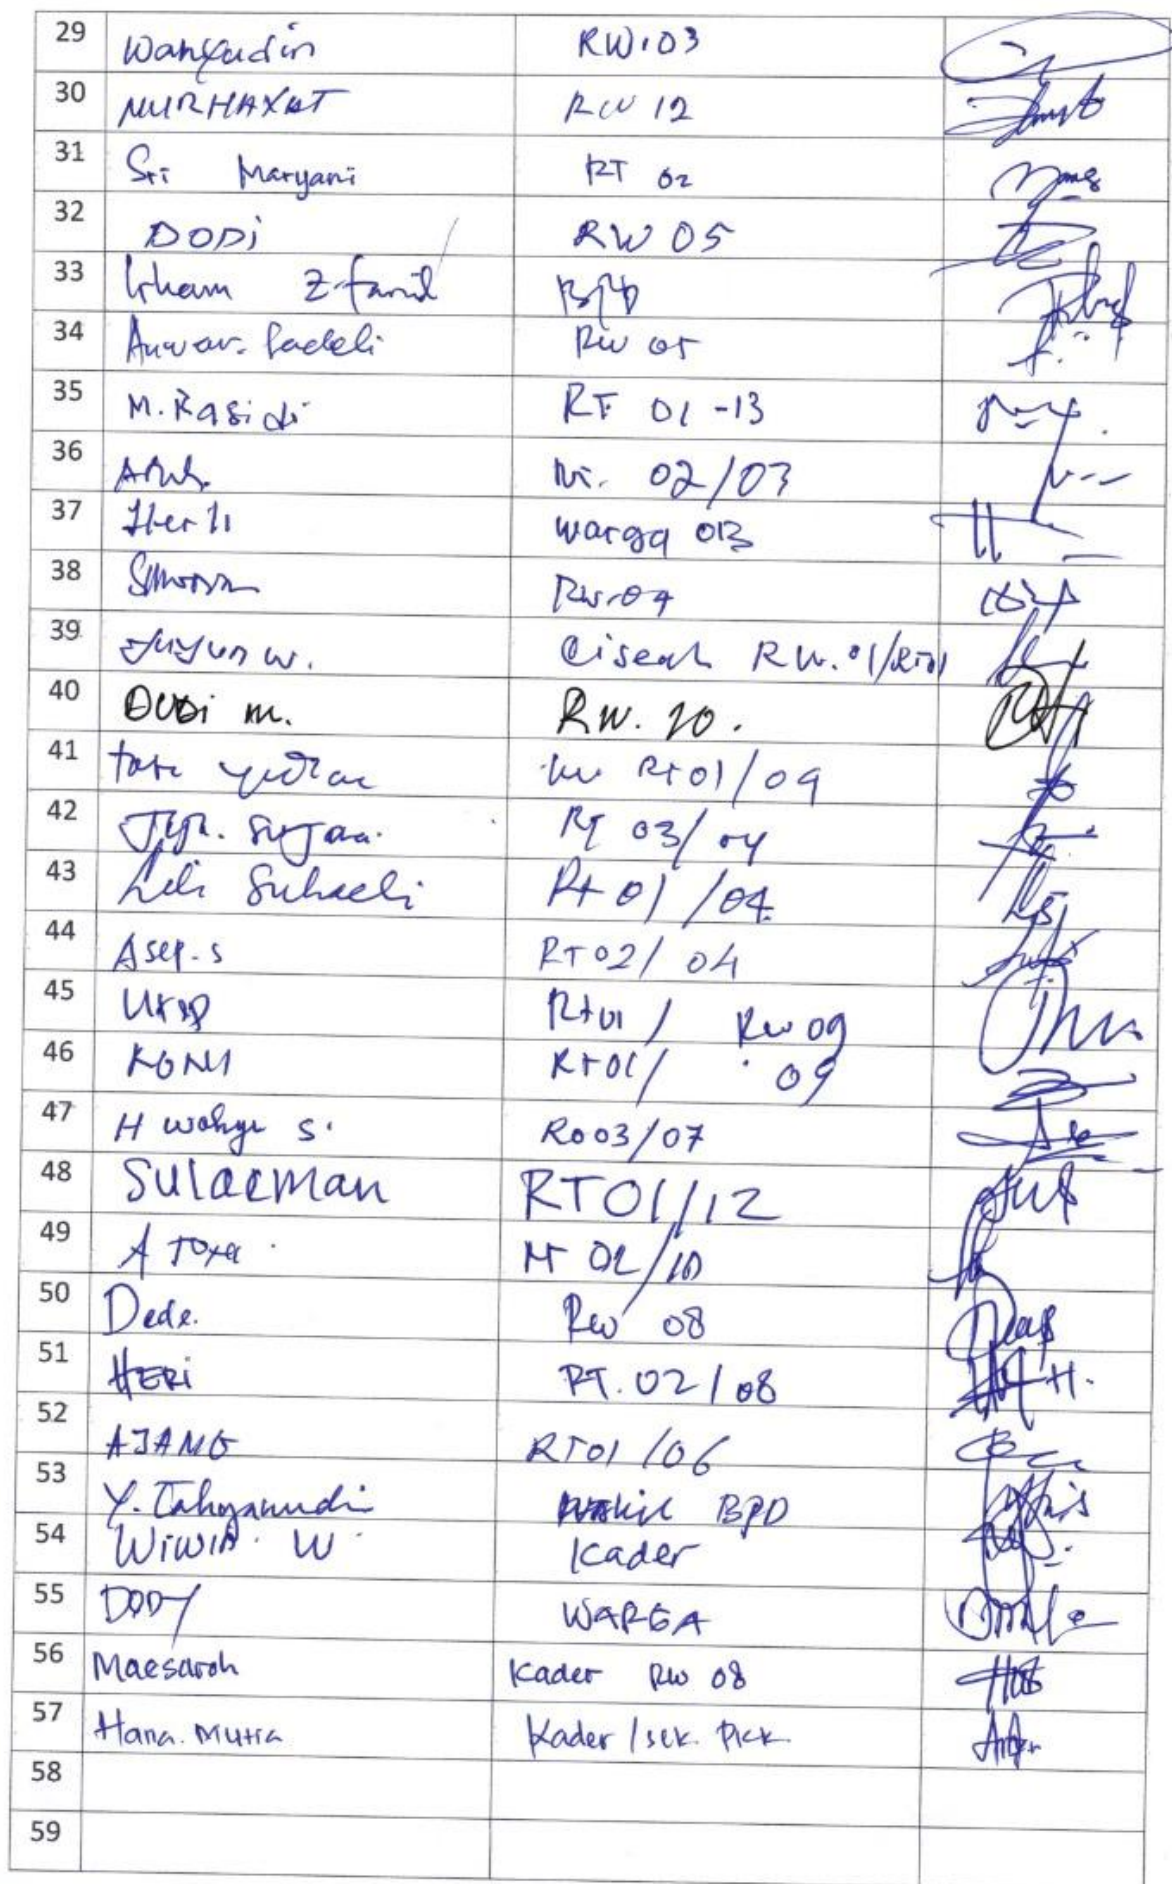 29 Wahyudin RW.03
30 NURHAYAT RW 12
31 Sri Maryani RT 02
32 DODi RW 05
33 Irham Z. farid BPD
34 Anwar. Sadeli RW 05
35 M. Rasidi RT 01 -13
36 02/03
37 Herli warga 013
38 RW.04
39 Yuyun w. Ciseah RW. 01/RT01
40 DUDi m. RW. 10.
41 RT 01/04
42 RT 03/04
43 Lili Suhaeli Rt 01 /04
44 Asep.s RT 02/ 04
45 Rt 01 / Rw 09
46 Rt 01/ 09
47 H wahyu s. 003/07
48 SULAEMAN RT 01/12
49 A RT 02/10
50 Dede. RW 08
51 HERi RT. 02/08
52 AJANG RT01 /06
53 Y. wakil BPD
54 WIWIN. W Kader
55 DODY WARGA
56 Maesaroh Kader RW 08
57 Hana. Mutia Kader / sek. PKK
58
59